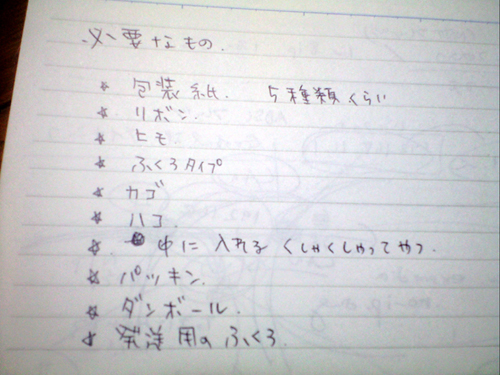 必要なもの.
☆ 包装紙. 5種類くらい
☆ リボン.
☆ ヒモ
☆ ふくろタイプ
☆ カゴ
☆ ハコ.
☆ 中に入れる くしゃくしゃってやつ.
☆ パッキン.
☆ ダンボール.
☆ 発送用のふくろ.